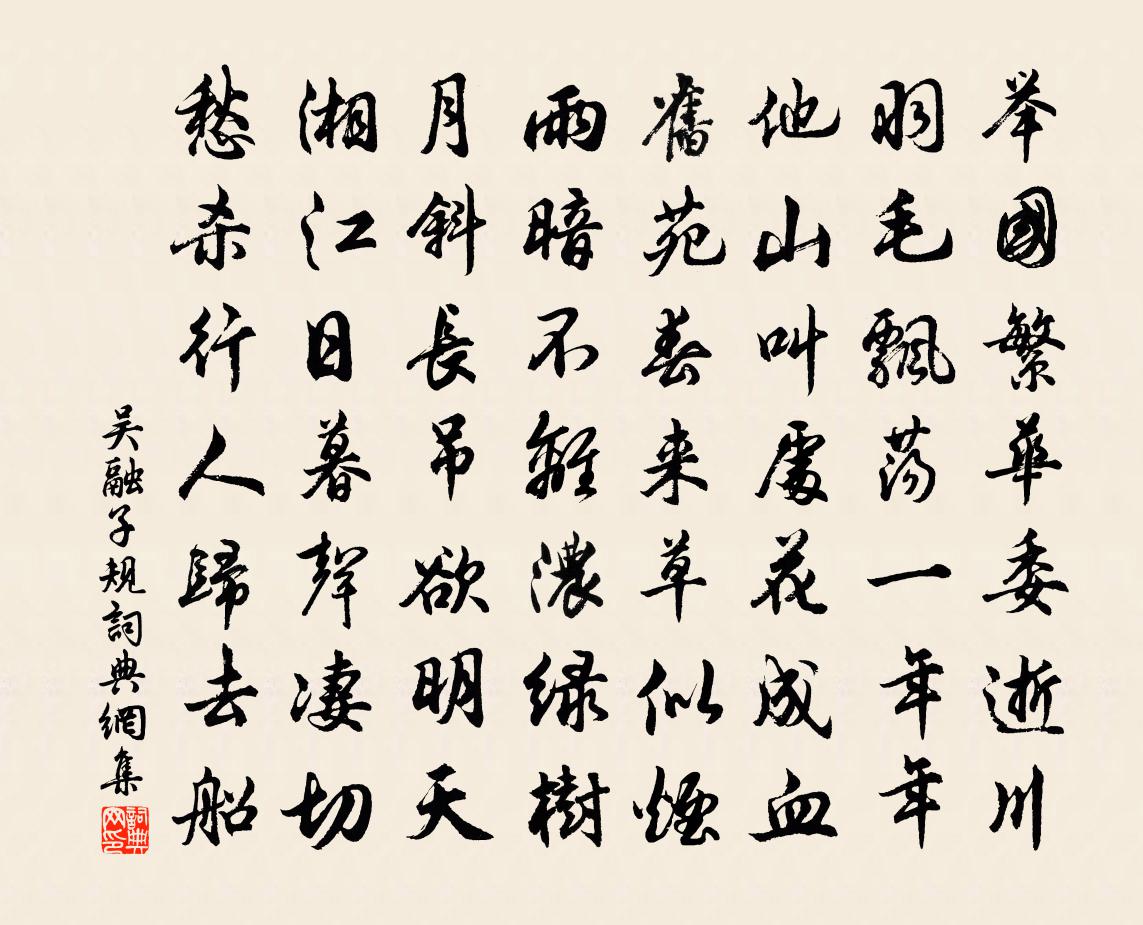 举國繁華委逝川
羽毛飄荡一年年
他山叫處花成血
舊苑春来草似煙
雨暗不離濃绿樹
月斜長吊欲明天
湘江日暮聲凄切
愁杀行人歸去船
吴融子规詞典網集
詞典网印